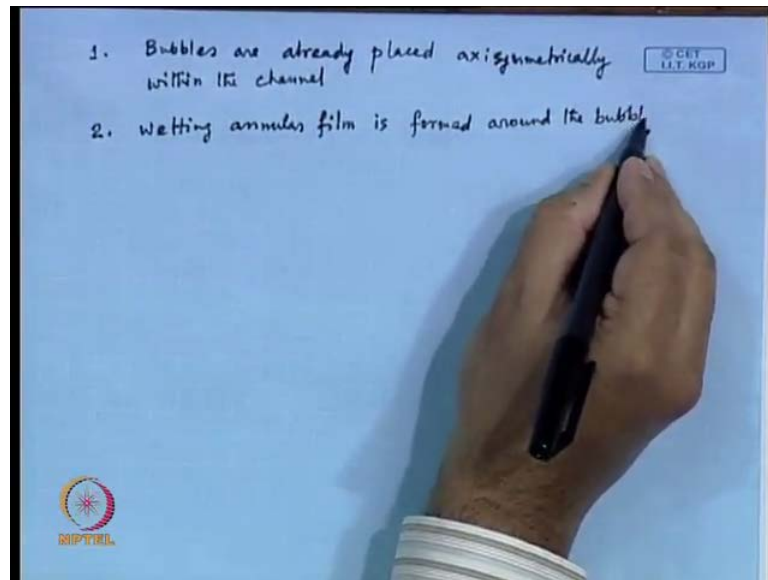 1. Bubbles are already placed axisymmetrically
within the channel
© CET
I.I.T. KGP
2. Wetting annular film is formed around the bubbl
NPTEL